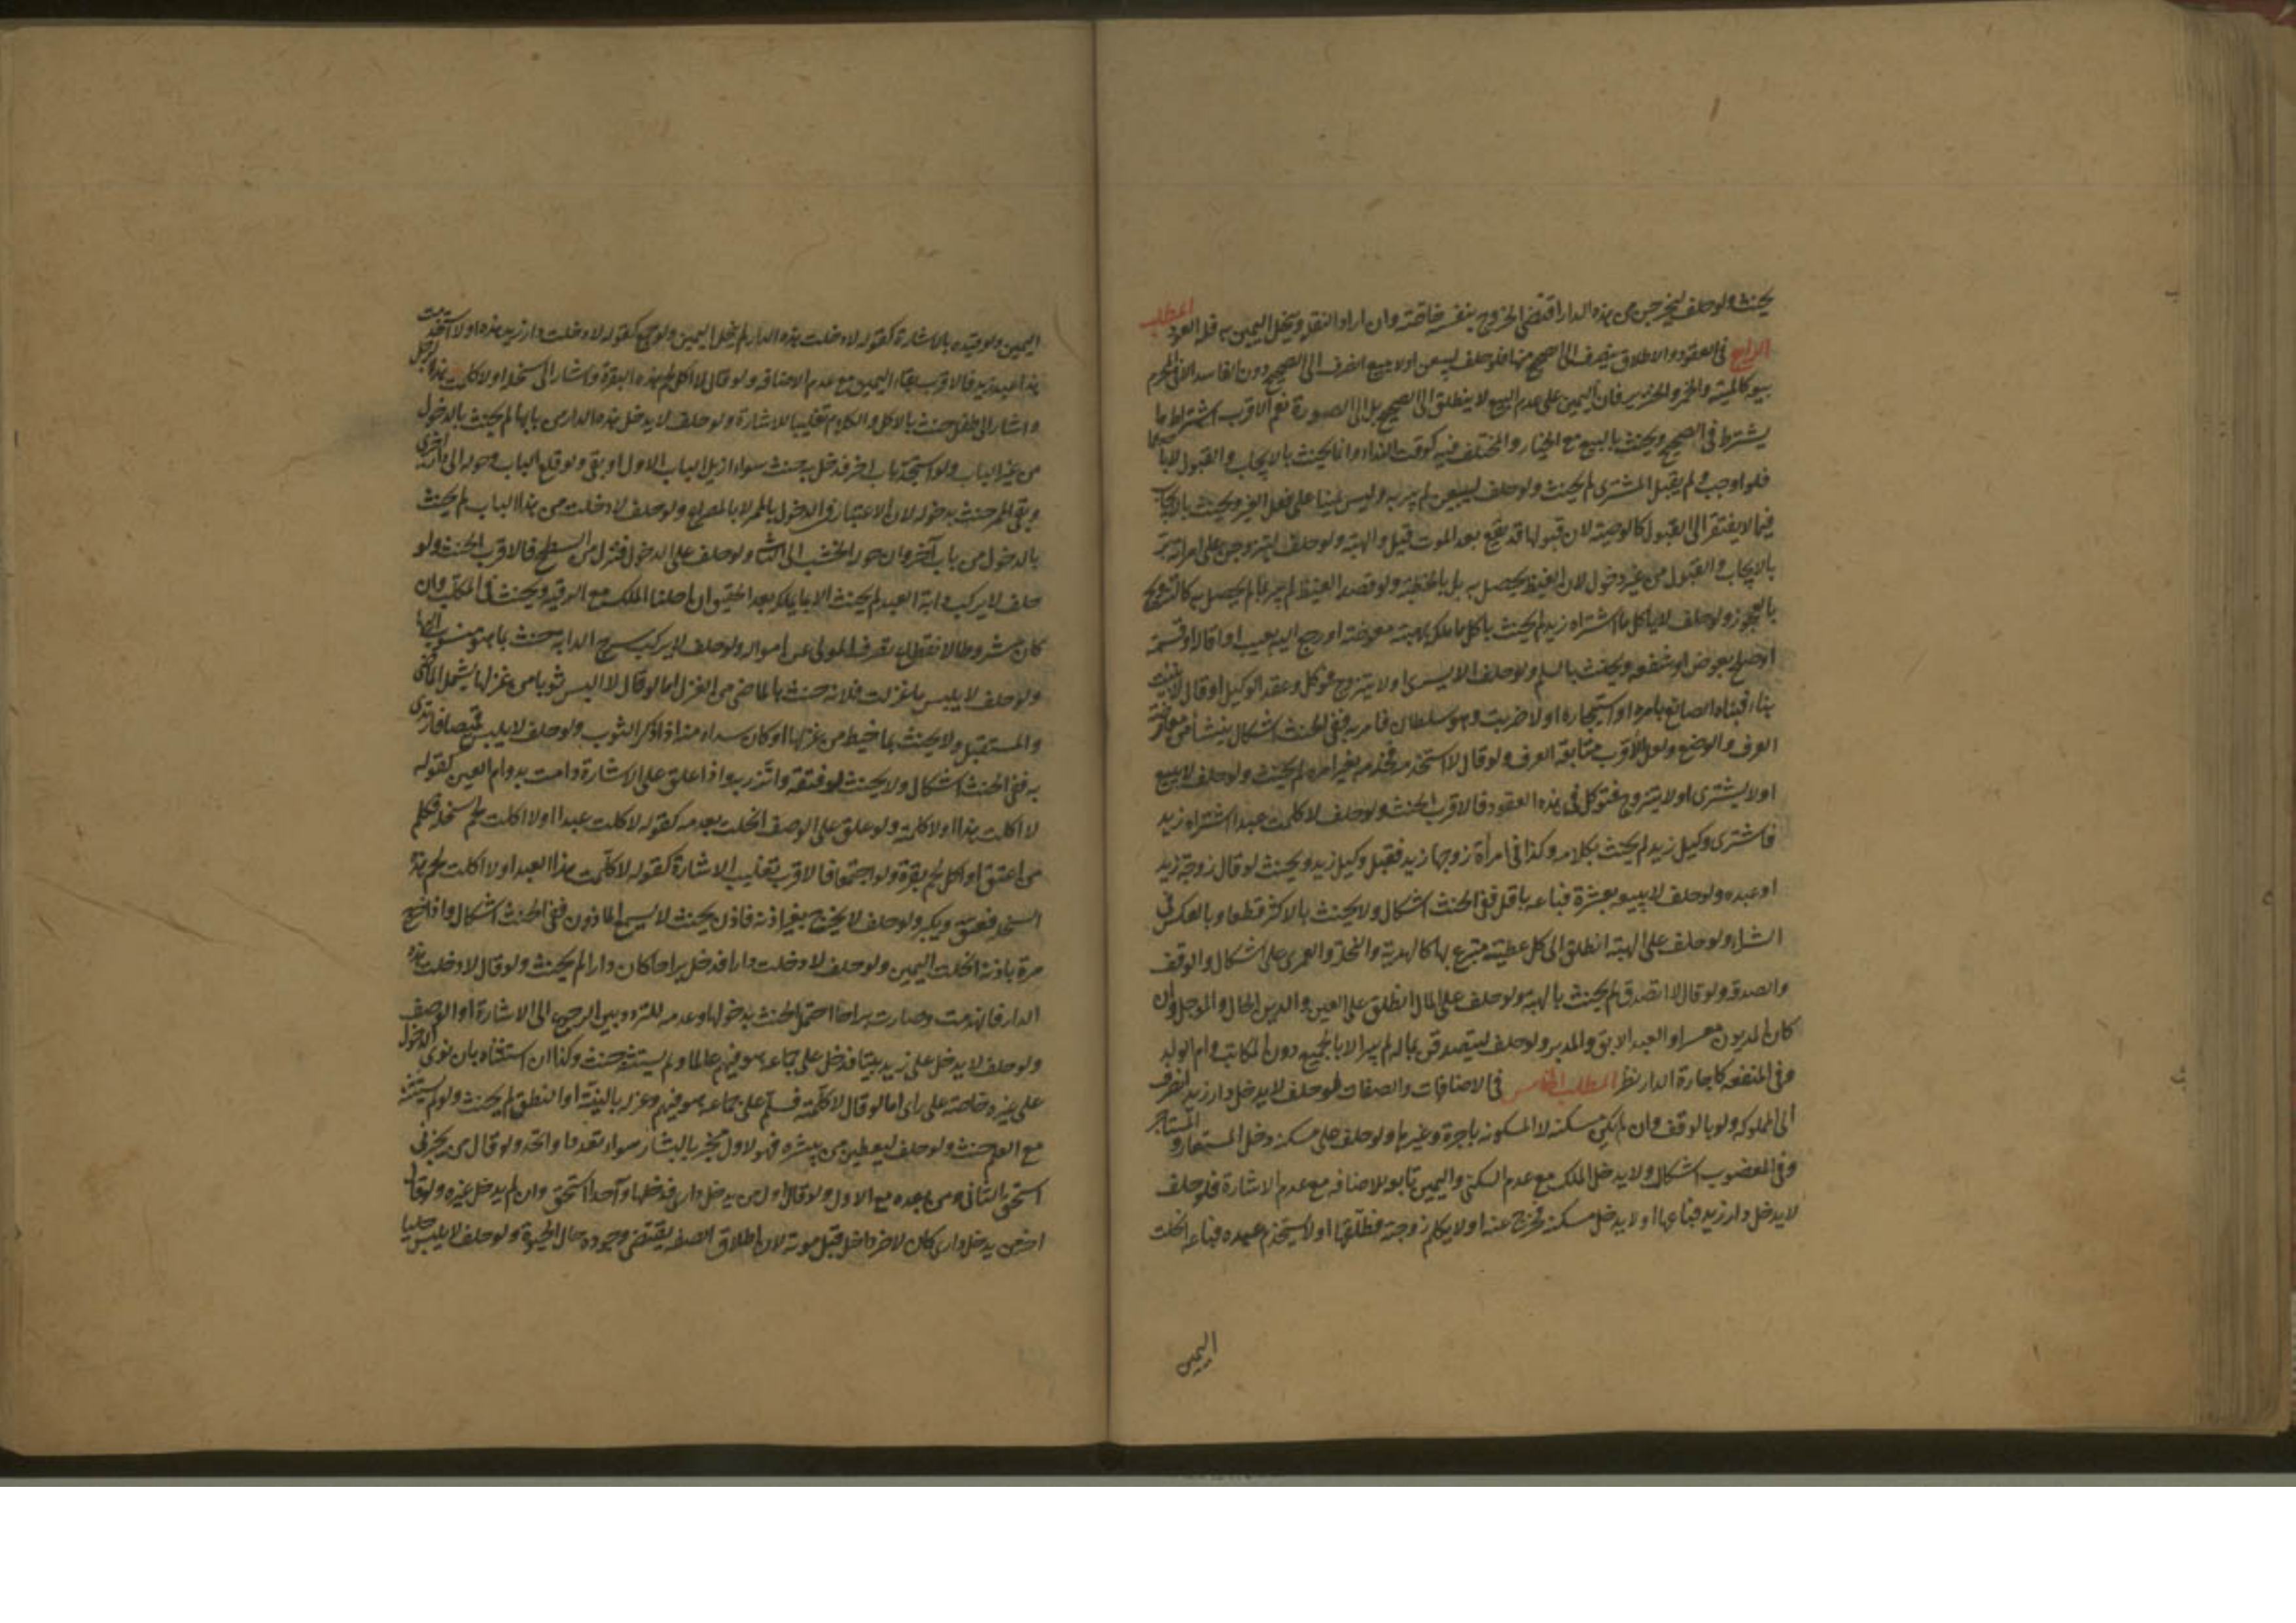 يحنث ولو حلف ليخرجن من هذه الدار اقتضى الخروج بنفسه خاصة وان اراد النقل وتنحل اليمين به فله العود المطلب
الرابع في العقود والاطلاق ينصرف الى الصحيح منها فلو حلف ليبيعن او لا يبيع انصرف الى الصحيح دون الفاسد الا في المحرم
بيعه كالميتة والخمر والخنزير فان اليمين على عدم البيع لا ينطلق الى الصحيح بل الى الصورة نعم الاقرب اشتراط ما
يشترط في الصحيح ويحنث بالبيع مع الخيار والمختلف فيه كوقت النداء وانما يحنث بالايجاب والقبول لا بالايجاب
فلو اوجب ولم يقبل المشترى لم يحنث ولو حلف ليبيعن لم يبر به وليس يمينا على فعل الغير ويحنث بالايجاب
فيما لا يفتقر الى القبول كالوصية لان قبولها قد يقع بعد الموت قيل والهبة ولو حلف ليتزوجن على امراته بر
بالايجاب والقبول من غير دخول لان الغيظ يحصل به بل بالخطبة ولو قصد الغيظ لم يبر بما لم يحصل به كالتزويج
بالعجوز ولو حلف لا ياكل ما اشتراه زيد لم يحنث باكل ما ملكه بهبة معوضة او رجع اليه بعيب او اقالة او قسمة
او صلح بعوض او شفعه ويحنث بالسلم ولو حلف لا يشترى او لا يتزوج فتوكل وعقد الوكيل او قال لا بنيت
بناء فبناه الصانع بامره او استيجاره او لا ضربت وهو سلطان فامر به ففي الحنث اشكال ينشا من معارضة
العرف والوضع ولعل الاقرب متابعة العرف ولو قال لا استخدمت فخدمه بغير امره لم يحنث ولو حلف لا يبيع
او لا يشترى او لا يتزوج فتوكل في هذه العقود فالاقرب الحنث ولو حلف لا كلمت عبدا اشتراه زيد
فاشترى وكيل زيد لم يحنث بكلامه وكذا في امراة زوجها زيد فقبل وكيل زيد ويحنث لو قال زوجة زيد
او عبده ولو حلف لا يبيعه بعشرة فباعه باقل ففي الحنث اشكال ولا يحنث بالاكثر قطعا وبالعكس في
الشراء ولو حلف على الهبة انطلق الى كل عطية متبرع بها كالهدية والنحلة والعمرى على اشكال والوقف
والصدقه ولو قال لا اتصدق لم يحنث بالهبة ولو حلف على المال انطلق على العين والدين الحال والموجل وان
كان المديون معسرا والعبد الابق والمدبر ولو حلف ليتصدقن بماله لم يبر الا بالجميع دون المكاتب وام الولد
وفي المنفعه كاجارة الدار نظر المطلب الخامس في الاضافات والصفات فلو حلف لا يدخل دار زيد انصرف
الى المملوكه ولو بالوقف وان لم يكن مسكنه لا المسكونه باجرة وغيرها ولو حلف على مسكنه دخل المستعار والمستاجر
وفي المغصوب اشكال ولا يدخل الملك مع عدم السكنى واليمين تابع للاضافه مع عدم الاشارة فلو حلف
لا يدخل دار زيد فباعها او لا يدخل مسكنه فخرج عنه او لا يكلم زوجته فطلقها او لا يستخدم عبده فباعه انحلت
اليمين
اليمين ولو قيده بالاشارة كقوله لا دخلت هذه الدار لم ينحل اليمين ولو جمع كقوله لا دخلت دار زيد هذه او لا استخدمت
هذا عبد زيد فالاقرب بقاء اليمين مع عدم الاضافه ولو قال لا اكل لحم هذه البقرة واشار الى سخلة او لا كلمت هذا الرجل
واشار الى طفل حنث بالاكل والكلام تغليبا للاشارة ولو حلف لا يدخل هذه الدار من بابها لم يحنث بالدخول
من غير الباب ولو استجد باب اخر فدخل به حنث سواء ازيل الباب الاول او بقى ولو قلع الباب وحوله الى دار اخرى
وبقى الممر حنث بدخوله لان الاعتبار في الدخول بالممر لا بالمصراع ولو حلف لا دخلت من هذا الباب لم يحنث
بالدخول من باب آخر وان حول الخشب اليه ولو حلف على الدخول فنزل من السطح فالاقرب الحنث ولو
حلف لا يركب دابة العبد لم يحنث الا بما يملكه بعد العتق وان احلنا الملك مع الرقيه ويحنث في المكاتب وان
كان مشروطا لانقطاع تصرف المولى عن امواله ولو حلف لا يركب سرج الدابة حنث بما هو منسوب اليها
ولو حلف لا يلبس ما غزلت فلانه حنث بالماضي من الغزل اما لو قال لا البس ثوبا من غزلها شمل الماضي
والمستقبل ولا يحنث بما خيط من غزلها او كان سداه منه اذا ذكر الثوب ولو حلف لا يلبس قميصا فارتدى
به ففي الحنث اشكال ولا يحنث لو فتقه واتزر به واذا علق على الاشارة دامت بدوام العين كقوله
لا اكلت هذا او لا كلمته ولو علق على الوصف انحلت بعدمه كقوله لا كلمت عبدا او لا اكلت لحم سخلة فكلم
من اعتق او اكل لحم بقرة ولو اجتمعا فالاقرب تغليب الاشارة كقوله لا كلمت هذا العبد او لا اكلت لحم هذه
السخلة فيعتق ويكبر ولو حلف لا يخرج بغير اذنه فاذن بحيث لا يسمع الماذون ففي الحنث اشكال واذا خرج
مرة باذنه انحلت اليمين ولو حلف لا دخلت دارا فدخل براحا كان دارا لم يحنث ولو قال لا دخلت هذه
الدار فانهدمت وصارت براحا احتمل الحنث بدخولها وعدمه للتردد بين الرجوع الى الاشارة او الوصف
ولو حلف لا يدخل على زيد بيتا فدخل على جماعه هو فيهم عالما ولم يستثنه حنث وكذا ان استثناه بان نوى الدخول
على غيره خاصة على راى اما لو قال لا كلمته فسلم على جماعه هو فيهم وعزله بالنية او النطق لم يحنث ولو لم يستثنه
مع العلم حنث ولو حلف ليعطين من يبشره فهو لاول مخبر بالبشارة سواء تعدد او اتحد ولو قال من يخبرني
استحق الثاني ومن بعده مع الاول ولو قال اول من يدخل داري فدخلها واحد استحق وان لم يدخل غيره ولو قال
اخر من يدخل داري كان لاخر داخل قبل موته لان اطلاق الصفه يقتضي وجوده حال الحيوة ولو حلف لا يلبس حليا